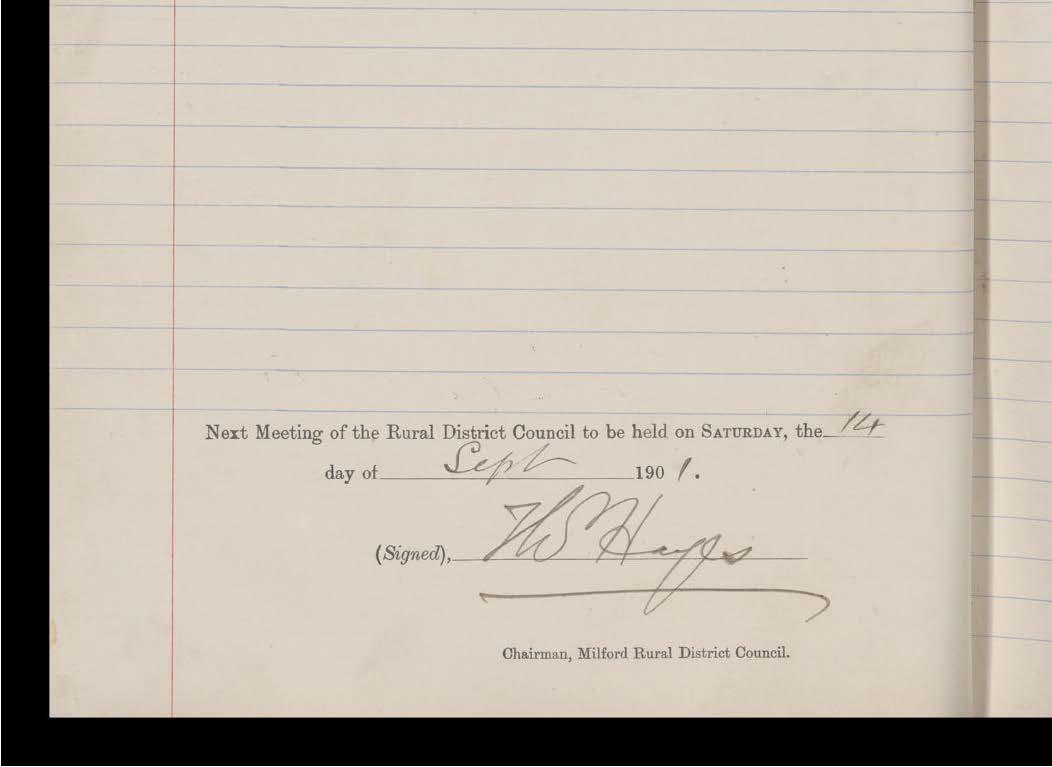 Next Meeting of the Rural District Council to be held on SATURDAY, the 14
day of Sept 1901.
(Signed), Hayes
Chairman, Milford Rural District Council.